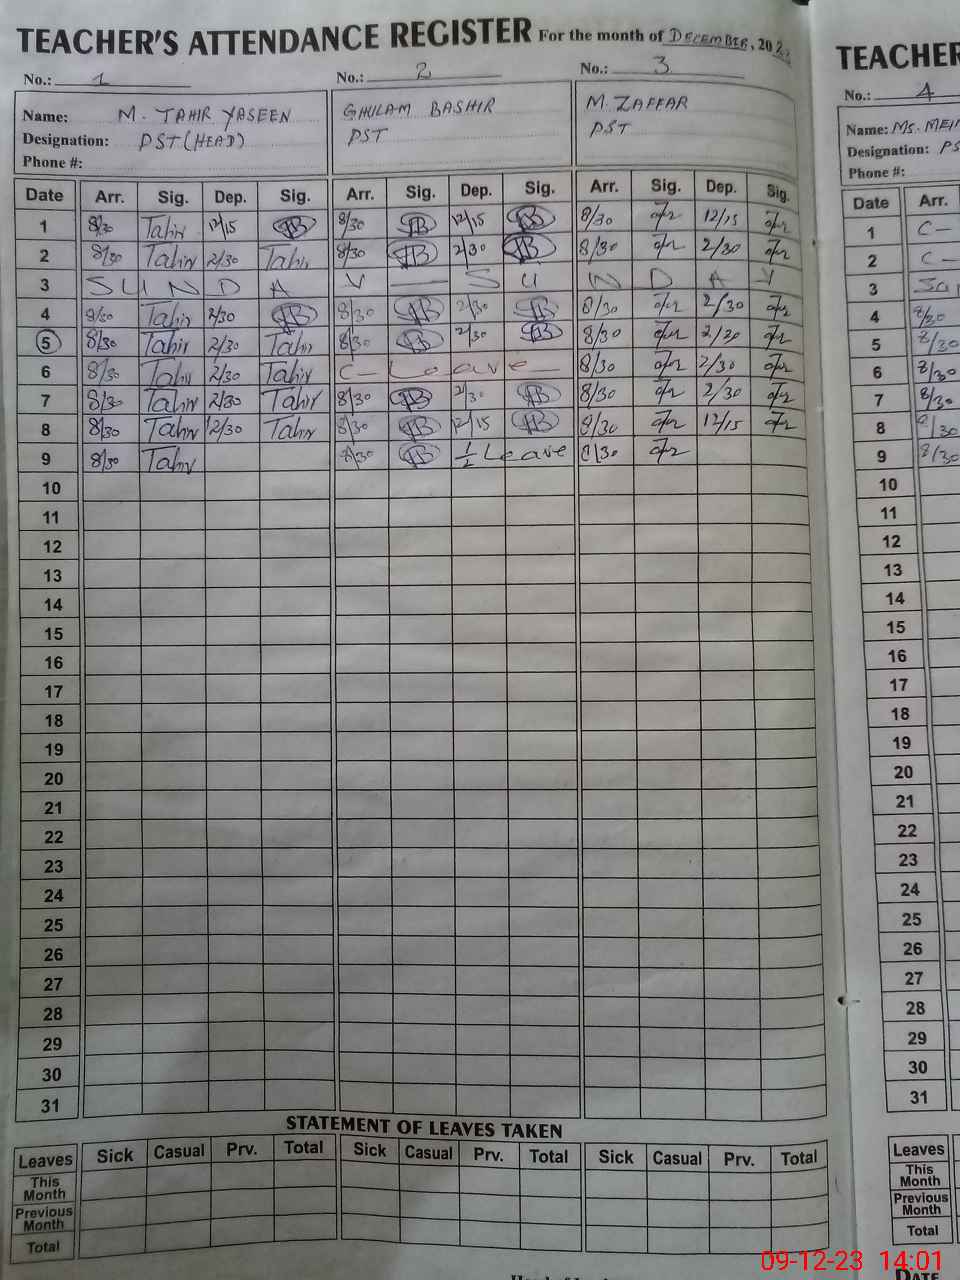 TEACHER'S ATTENDANCE REGISTER For the month of DECEMBER, 202
No.: 1 No.: 2 No.: 3
Name: M. TAHIR YASEEN GHULAM BASHIR M. ZAFFAR
Designation: PST (HEAD) PST PST
Phone #:
Date Arr. Sig. Dep. Sig. Arr. Sig. Dep. Sig. Arr. Sig. Dep. Sig.
1 8/30 Tahir 12/15 8/30 12/15 8/30 12/15
2 8/30 Tahir 2/30 Tahir 8/30 2/30 8/30 2/30
3 S U N D A Y — S U N D A Y
4 8/30 Tahir 2/30 8/30 2/30 8/30 2/30
5 8/30 Tahir 2/30 Tahir 8/30 2/30 8/30 2/20
6 8/30 Tahir 2/30 Tahir C - Leave 8/30 2/30
7 8/30 Tahir 2/30 Tahir 8/30 2/30 8/30 2/30
8 8/30 Tahir 12/30 Tahir 8/30 12/15 8/30 12/15
9 8/30 Tahir 8/30 1/2 Leave 8/30
10
11
12
13
14
15
16
17
18
19
20
21
22
23
24
25
26
27
28
29
30
31
STATEMENT OF LEAVES TAKEN
Leaves Sick Casual Prv. Total Sick Casual Prv. Total Sick Casual Prv. Total
This Month
Previous Month
Total
TEACHER
No.: 4
Name: Ms.
Designation: PS
Phone #:
Date Arr.
1 C-
2 C-
3
4 8/30
5 8/30
6 8/30
7 8/30
8 8/30
9 8/30
10
11
12
13
14
15
16
17
18
19
20
21
22
23
24
25
26
27
28
29
30
31
Leaves
This Month
Previous Month
Total
DATE
09-12-23 14:01